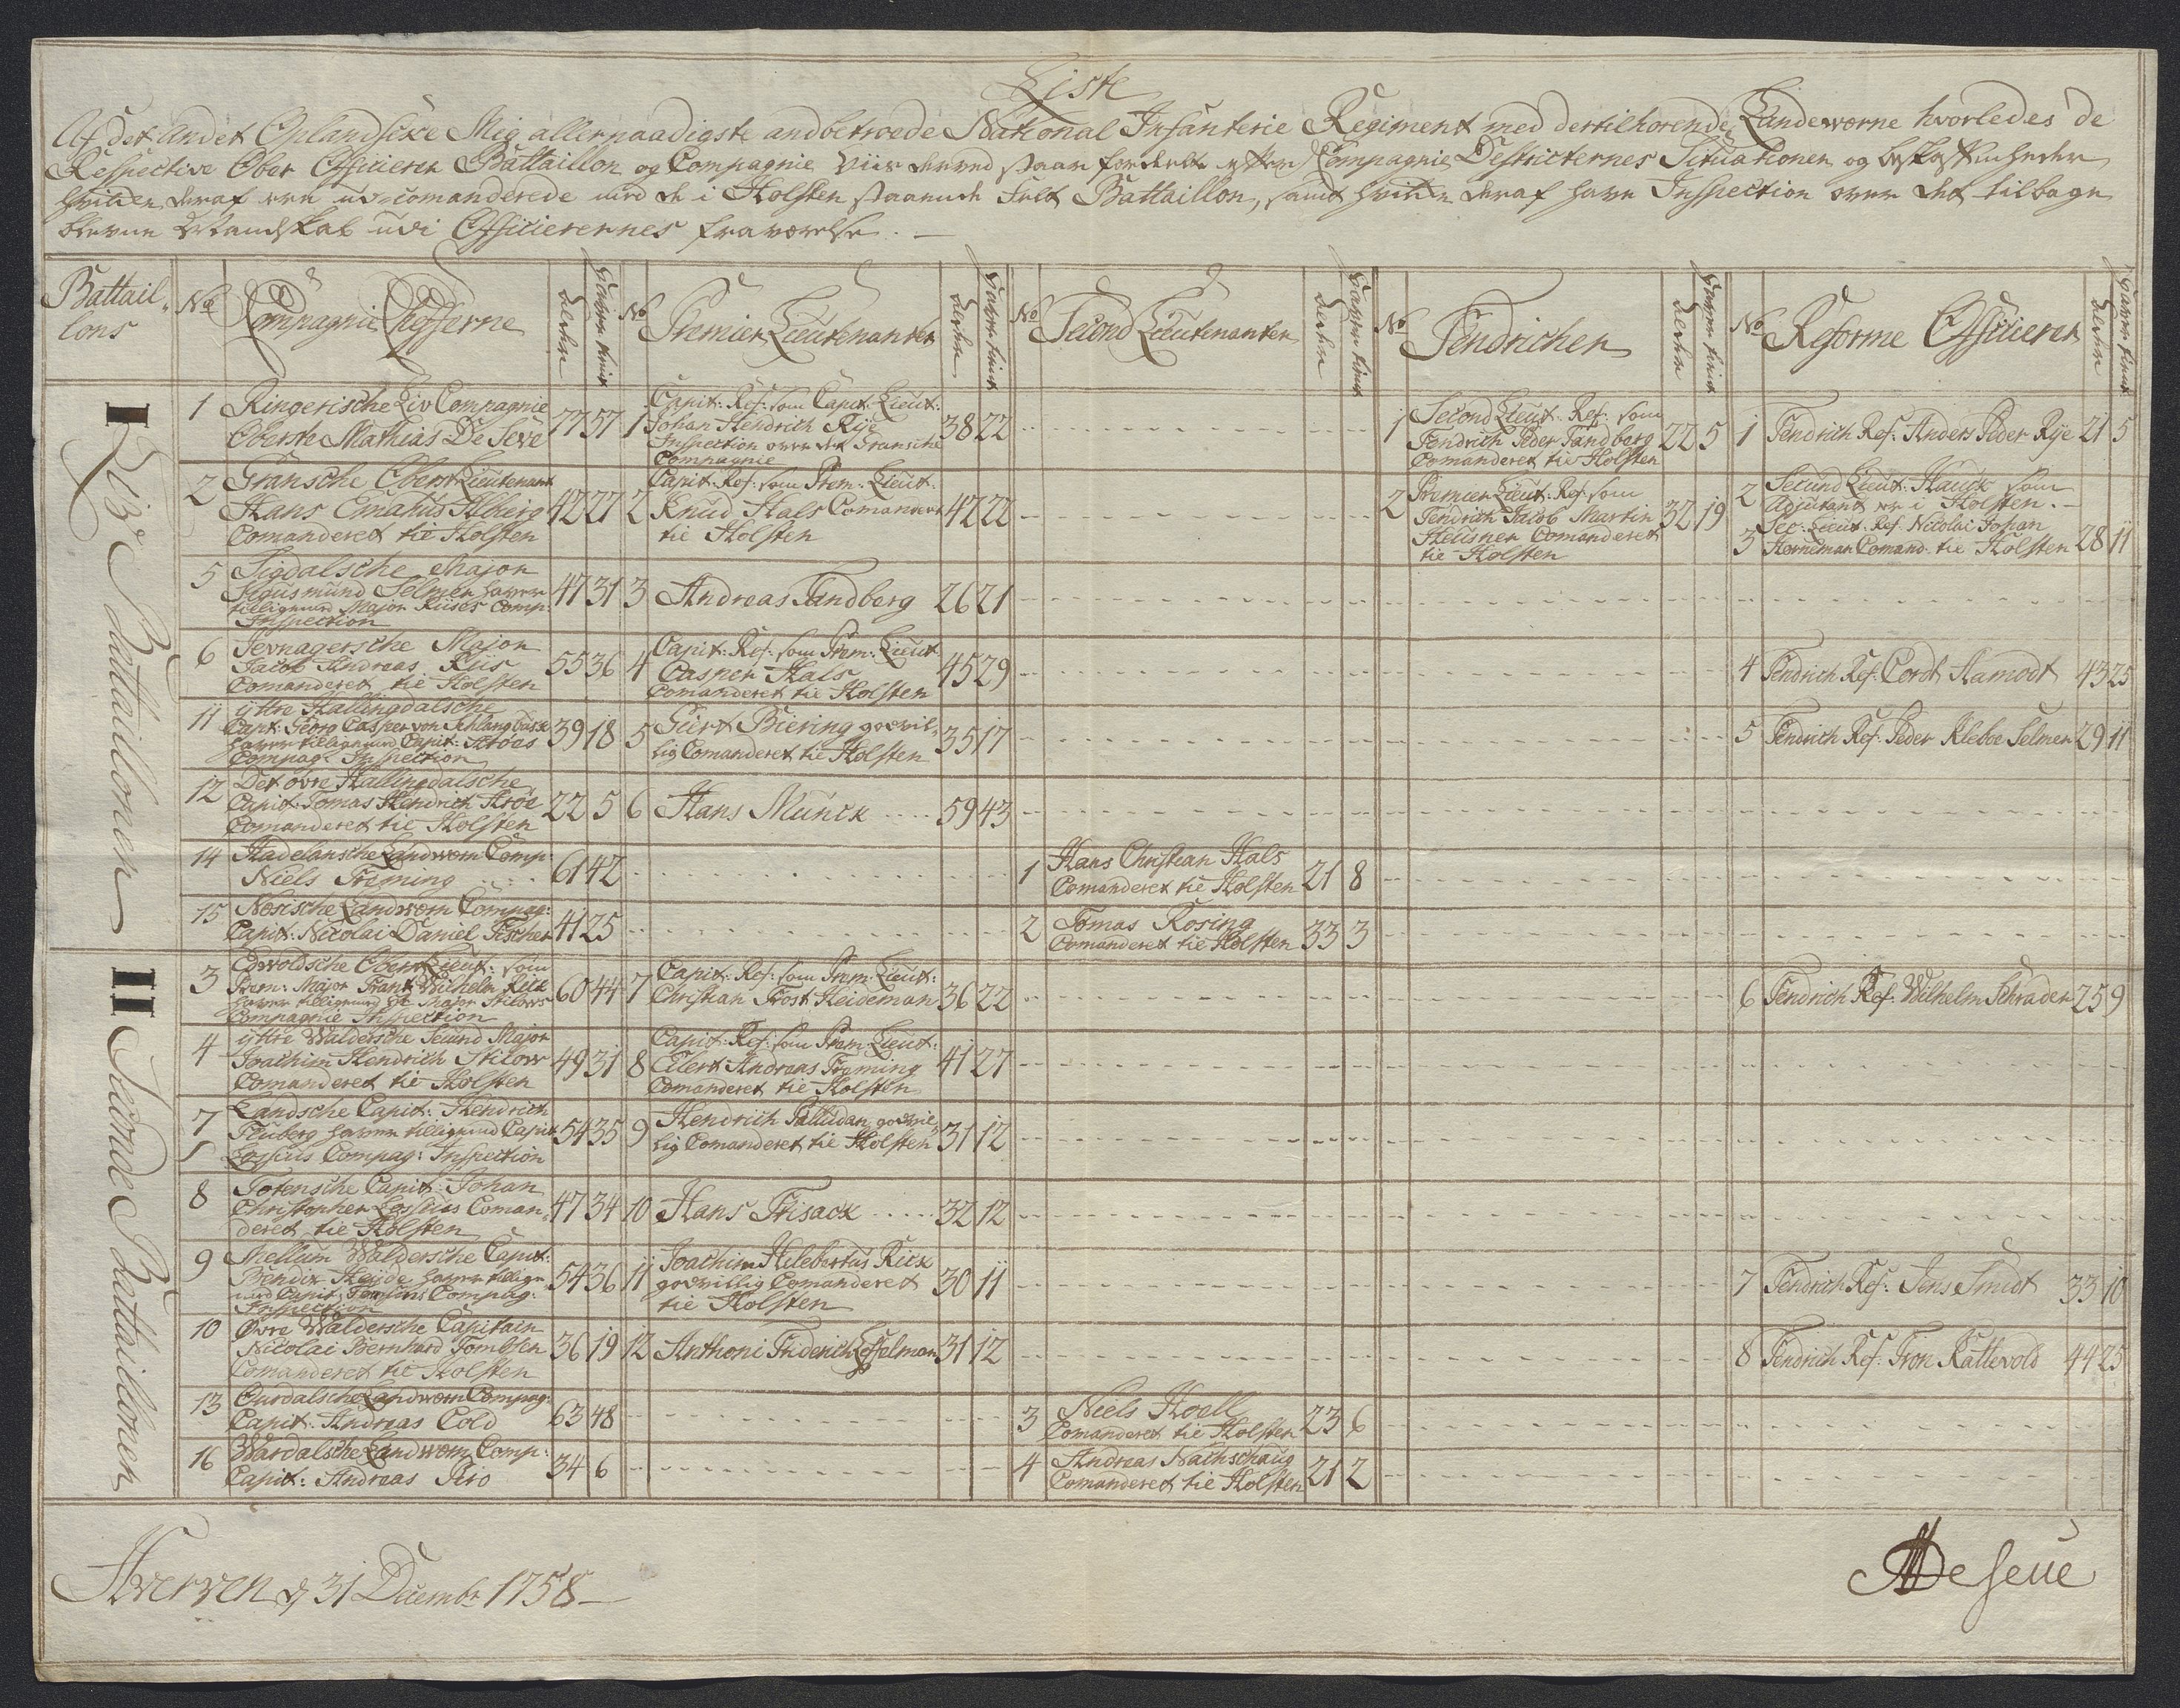 Liste
Af det Andet Oplandske Mig allernaadigste anbetroede National Infanterie Regiment med dertilhörende Landeværne hvorledes de
Respective Ober Officierer Battaillon og Compagnie Viis derved staar fordeelt efter Compagnie Destricternes Situationer og beskaffenheder
hvilke deraf ere ud-comanderede med de i Holsten staaende Felt Battaillon, samt hvilke deraf have Inspection over det tilbage
blevne Mandskab udi Officierernes fraværelse.
Battail-
lons
No
Compagnie Chefferne
Alder
Haver tient
No
Premier Lieutenanter
Haver tient
No
Second Lieutenanter
Haver tient
No
Fendricher
Haver tient
No
Reforme Officierer
Haver tient
I Liv Battaillonen
1 Ringerische Liv Compagnie
Oberste Mathias De Seve 77 57
1 Capit: Ref: som Capit: Lieut:
Johan Hendrich Rije
Inspection over det Gransche
Compagnie 38 22
1 Second Lieut: Ref: som
Fendrich Peder Tandberg
Comanderet til Holsten 22 5
1 Fendrich Ref: Anders Peder Rije 21 5
2 Gransche Oberst Lieutenant
Hans Emahus Alberg
Comanderet til Holsten 42 27
2 Capit: Ref: som Prem: Lieut:
Knud Hals Comanderet
til Holsten 42 22
2 Premier Lieut: Ref: som
Fendrich Jacob Martin
Heisner Comanderet
til Holsten 32 19
2 Secund Lieut: Hauck som
Adjutant er i Holsten.
3 Sec: Lieut: Ref: Nicolai Johan
Horneman Comand: til Holsten 28 11
5 Sigdalsche Major
Sigusmund Selmer haver
tilligemed Major Rüses Comp:
Inspection 47 31
3 Andreas Tandberg 26 21
6 Jevnagersche Major
Jacob Andreas Rüs
Comanderet til Holsten 55 36
4 Capit: Ref: som Prem: Lieut
Casper Hals
Comanderet til Holsten 45 29
4 Fendrich Ref: Cordt Aamodt 43 25
11 ÿttre Hallingdalsche
Capt: Georg Casper von Schlangbusck
haver tilligemed Capit: Kröes
Compag: Inspection 39 18
5 Giert Biering godvil-
lig Comanderet til Holsten 35 17
5 Fendrich Ref: Peder Kleboe Selmer 29 11
12 Det övre Hallingdalsche
Capit: Tomas Hendrich Kröe
Comanderet til Holsten 22 5
6 Hans Munck 59 43
14 Hadelansche Landværn Comp:
Niels Freming 61 42
1 Hans Christian Hals
Comanderet til Holsten 21 8
15 Næsische Landværn Compag:
Capit: Nicolai Daniel Fischer 41 25
2 Tomas Rosing
Comanderet til Holsten 33 3
II Secunde Battaillonen
3 Edvoldsche Oberst Lieut: som
Prem: Major Frantz Wilhelm Rick
haver tilligemed Sec Major Stilows
Compagnie Inspection 60 44
7 Capit: Ref: som Prem: Lieut:
Christian Frost Heideman 36 22
6 Fendrich Ref: Wilhelm Schrader 25 9
4 ÿttre Waldersche Secund Major
Joachim Hendrich Stilow
Comanderet til Holsten 49 31
8 Capit: Ref: som Prem: Lieut:
Eilert Andreas Freming
Comanderet til Holsten 41 27
7 Landsche Capit: Hendrich
Fluberg haver tilligemed Capit
Lossius Compag: Inspection 54 35
9 Hendrich Palludan, godvil-
lig Comanderet til Holsten 31 12
8 Totensche Capit: Johan
Christopher Lossius Coman-
deret til Holsten 47 34
10 Hans Frisack 32 12
9 Mellum Waldersche Capit:
Bendix Heijde haver tillige
med Capit: Tombsens Compag:
Inspection 54 36
11 Joachim Hilebertus Rick
godvillig Comanderet
til Holsten 30 11
7 Fendrich Ref: Jens Smidt 33 10
10 Övre Waldersche Capitain
Nicolai Bernhard Tombsen
Comanderet til Holsten 36 19
12 Anthoni Friderich Esselman 31 12
8 Fendrich Ref: Iver Kattevold 44 25
13 Ourdalsche Landværn Compag:
Capit: Andreas Cold 63 48
3 Niels Hoell
Comanderet til Holsten 23 6
16 Wardalsche Landværn Comp:
Capit: Andreas Piro 34 6
4 Andreas Nachschaug
Comanderet til Holsten 21 2
Hverven d 31 Decembr 1758
MDeSeue